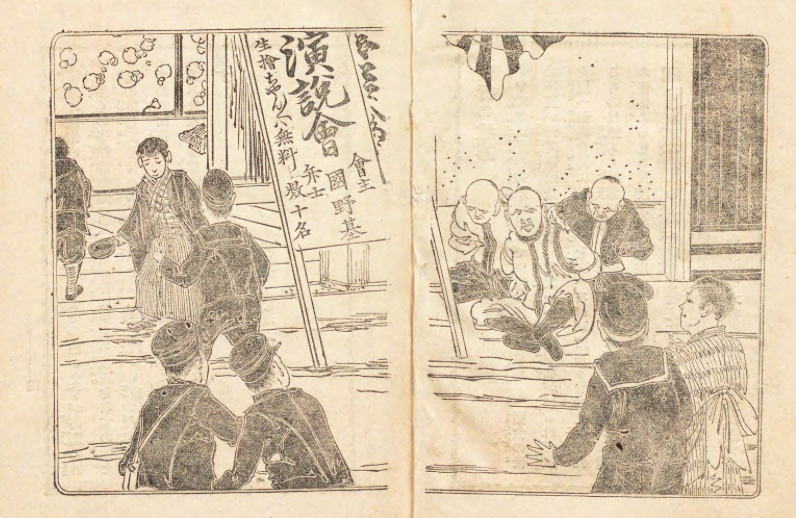 演説會
會主 國野基
弁士 数十名
生擒ちやん〱無料